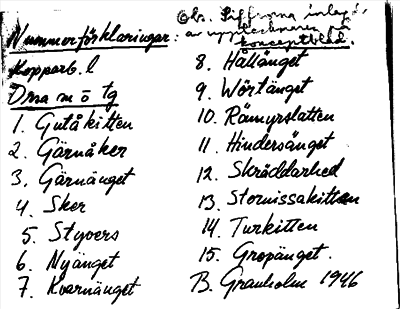 Obs. Siffrorna inlagda
av uppteckningen på
konceptblad.
Nummerförklaringar:
Kopparb. l
Orsa m o tg
1. Gutåkitten
2. Gärnåker
3. Gärnänget
4. Sker
5. Styvers
6. Nyänget
7. Kvarnänget
8. Hållänget
9. Wörtänget
10. Rämyrslatten
11. Hindersänget
12. Skräddarhed
13. Stornissakitten
14. Turkitten
15. Gropänget.
B. Granholm 1946